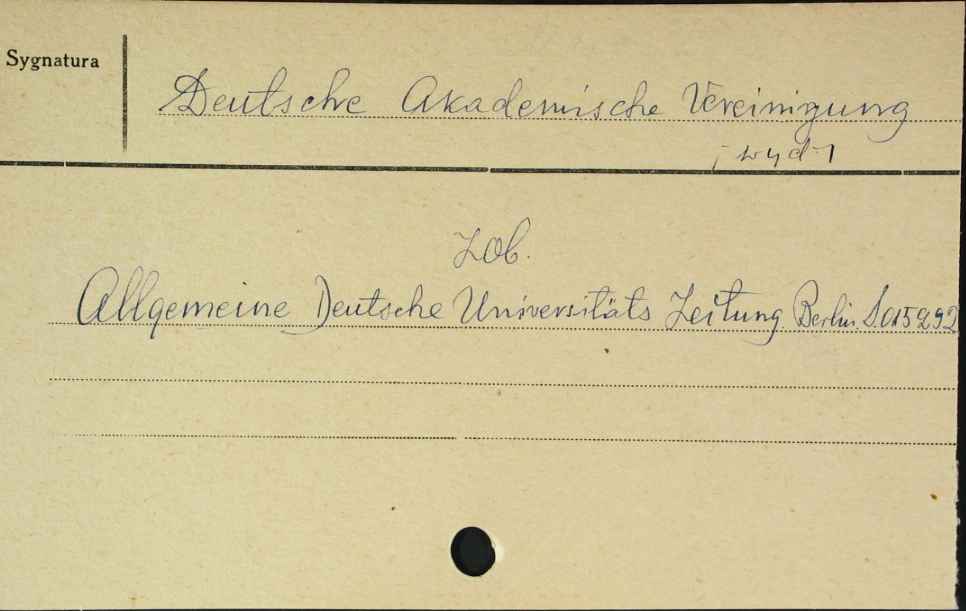 Sygnatura
Deutsche Akademische Vereinigung
; wyd.
Zob.
Allgemeine Deutsche Universitäts Zeitung Berlin S.015292